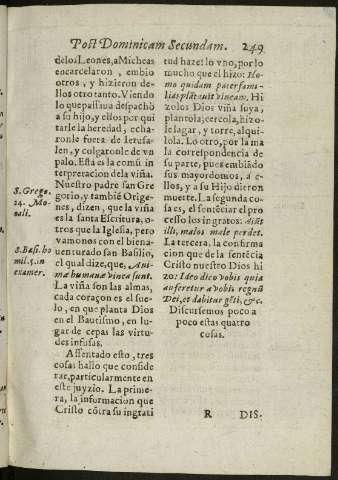 Post Dominicam Secundam. 249
de los Leones, a Micheas
encarcelaron, embio
otros, y hizieron de-
llos otro tanto. Viendo
lo que passaua despachò
a su hijo, y ellos por qui
tarle la heredad, echa-
ronle fuera de Ierusa-
len, y colgaronle de vn
palo. Esta es la comũ in
terpretacion dela viña.
Nuestro padre san Gre
gorio, y tambiẽ Orige-
nes, dizen, que la viña
es la santa Escritura, o-
tros que la Iglesia, pero
vamonos con el biena-
uenturado san Basilio,
el qual dize, que, Ani-
mæ humanæ vinea sunt.
La viña son las almas,
cada coraçon es el sue-
lo, en que planta Dios
en el Bautismo, en lu-
gar de cepas las virtu-
des infusas.
Assentado esto, tres
cosas hallo que conside
rar, particularmente en
este juyzio. La prime-
ra, la informacion que
Cristo cõtra su ingrati
S. Grego.
24. Mo-
rali.
S. Basi. ho
mil. 5. in
examer.
tud haze: lo vno, por lo
mucho que el hizo: Ho-
mo quidam paterfami-
lias plãtauit vineam. Hi
zolos Dios viña suya,
plantola; cercola, hizo-
le lagar, y torre, alqui-
lola. Lo otro, por la ma
la correspondencia de
su parte, pues embiãdo
sus mayordomos, a e-
llos, y a su Hijo dieron
muerte. La segunda co-
sa es, el sentẽciar el pro
cesso los ingratos: Aiũt
illi, malos male perdet.
La tercera, la confirma
cion que de la sentẽcia
Cristo nuestro Dios hi
zo: Ideo dico vobis quia
auferetur a vobis regnũ
Dei, et dabitur gẽti, &c.
Discursemos poco a
poco estas quatro
cosas.
R DIS-